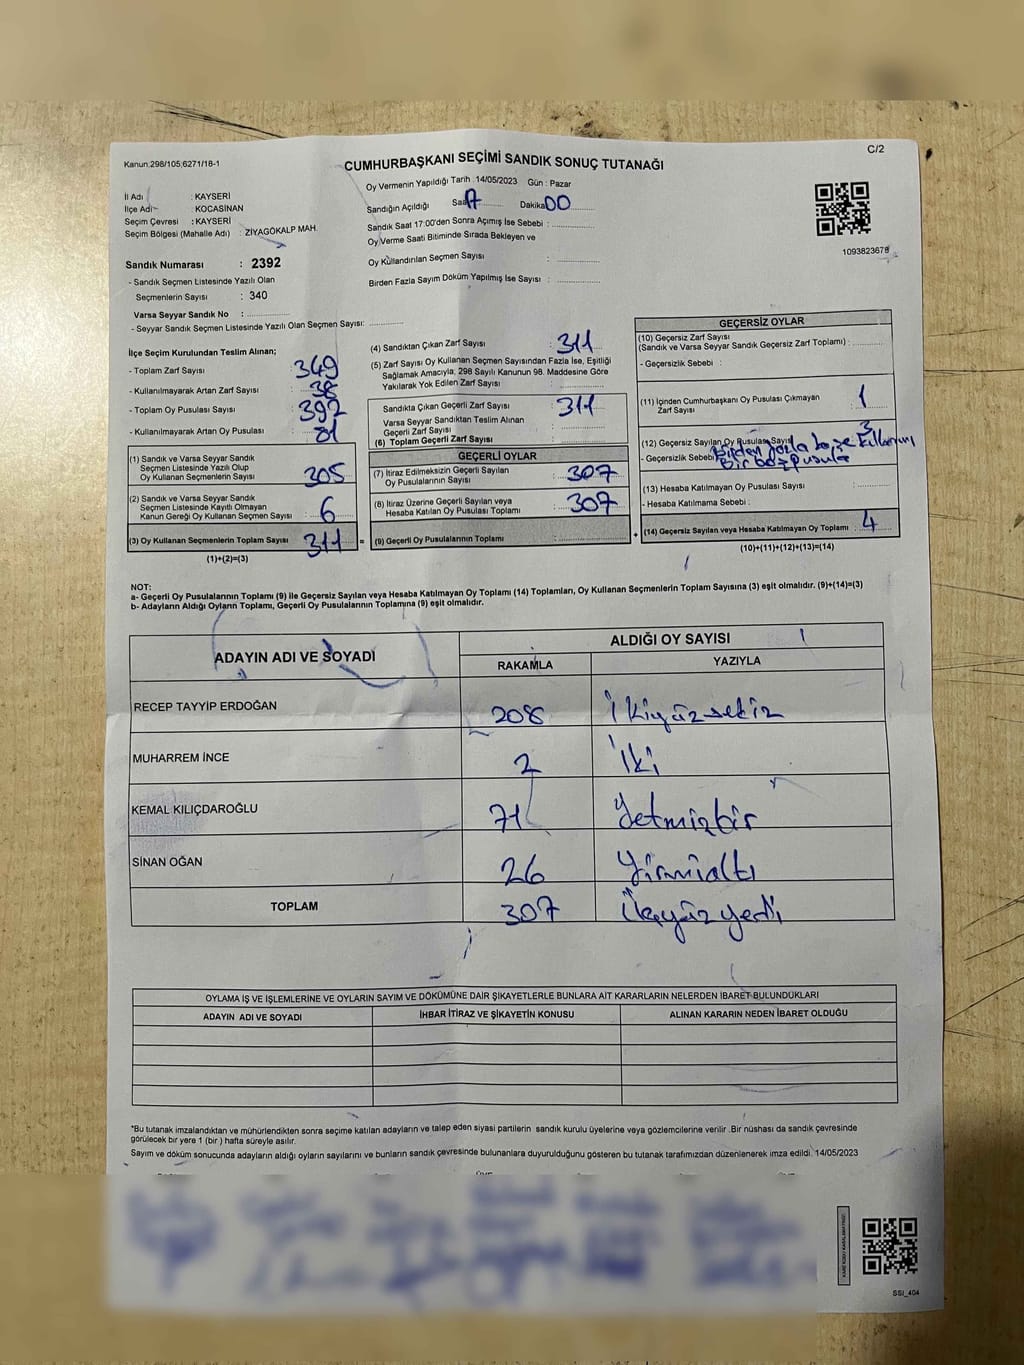 Kanun:298/105;6271/18-1
C/2
CUMHURBAŞKANI SEÇİMİ SANDIK SONUÇ TUTANAĞI
İl Adı : KAYSERİ
İlçe Adı : KOCASİNAN
Seçim Çevresi : KAYSERİ
Seçim Bölgesi (Mahalle Adı) : ZİYAGÖKALP MAH.
Sandık Numarası : 2392
- Sandık Seçmen Listesinde Yazılı Olan
Seçmenlerin Sayısı : 340
Varsa Seyyar Sandık No :
- Seyyar Sandık Seçmen Listesinde Yazılı Olan Seçmen Sayısı:
Oy Vermenin Yapıldığı Tarih :14/05/2023 Gün : Pazar
Sandığın Açıldığı Saat 17 Dakika 00
Sandık Saat 17:00'den Sonra Açımış İse Sebebi :
Oy Verme Saati Bitiminde Sırada Bekleyen ve
Oy Kullandırılan Seçmen Sayısı :
Birden Fazla Sayım Döküm Yapılmış İse Sayısı :
1093823678
İlçe Seçim Kurulundan Teslim Alınan;
- Toplam Zarf Sayısı : 349
- Kullanılmayarak Artan Zarf Sayısı : 38
- Toplam Oy Pusulası Sayısı : 392
- Kullanılmayarak Artan Oy Pusulası : 81
(1) Sandık ve Varsa Seyyar Sandık
Seçmen Listesinde Yazılı Olup
Oy Kullanan Seçmenlerin Sayısı : 305
(2) Sandık ve Varsa Seyyar Sandık
Seçmen Listesinde Kayıtlı Olmayan
Kanun Gereği Oy Kullanan Seçmen Sayısı : 6
(3) Oy Kullanan Seçmenlerin Toplam Sayısı : 311
(1)+(2)=(3)
=
(4) Sandıktan Çıkan Zarf Sayısı : 311
(5) Zarf Sayısı Oy Kullanan Seçmen Sayısından Fazla İse, Eşitliği
Sağlamak Amacıyla; 298 Sayılı Kanunun 98. Maddesine Göre
Yakılarak Yok Edilen Zarf Sayısı :
Sandıkta Çıkan Geçerli Zarf Sayısı : 311
Varsa Seyyar Sandıktan Teslim Alınan
Geçerli Zarf Sayısı :
(6) Toplam Geçerli Zarf Sayısı :
GEÇERLİ OYLAR
(7) İtiraz Edilmeksizin Geçerli Sayılan
Oy Pusulalarının Sayısı : 307
(8) İtiraz Üzerine Geçerli Sayılan veya
Hesaba Katılan Oy Pusulası Toplamı : 307
(9) Geçerli Oy Pusulalarının Toplamı :
+
GEÇERSİZ OYLAR
(10) Geçersiz Zarf Sayısı
(Sandık ve Varsa Seyyar Sandık Geçersiz Zarf Toplamı) :
- Geçersizlik Sebebi :
(11) İçinden Cumhurbaşkanı Oy Pusulası Çıkmayan
Zarf Sayısı : 1
(12) Geçersiz Sayılan Oy Pusulası Sayısı : 3
- Geçersizlik Sebebi Birden fazla kaşe kullanımı
bir boş pusula
(13) Hesaba Katılmayan Oy Pusulası Sayısı :
- Hesaba Katılmama Sebebi :
(14) Geçersiz Sayılan veya Hesaba Katılmayan Oy Toplamı : 4
(10)+(11)+(12)+(13)=(14)
NOT:
a- Geçerli Oy Pusulalarının Toplamı (9) ile Geçersiz Sayılan veya Hesaba Katılmayan Oy Toplamı (14) Toplamları, Oy Kullanan Seçmenlerin Toplam Sayısına (3) eşit olmalıdır. (9)+(14)=(3)
b- Adayların Aldığı Oyların Toplamı, Geçerli Oy Pusulalarının Toplamına (9) eşit olmalıdır.
ADAYIN ADI VE SOYADI
ALDIĞI OY SAYISI
RAKAMLA YAZIYLA
RECEP TAYYİP ERDOĞAN 208 İkiyüzsekiz
MUHARREM İNCE 2 İki
KEMAL KILIÇDAROĞLU 71 Yetmizbir
SİNAN OĞAN 26 Yirmialtı
TOPLAM 307 Üçyüzyedi
OYLAMA İŞ VE İŞLEMLERİNE VE OYLARIN SAYIM VE DÖKÜMÜNE DAİR ŞİKAYETLERLE BUNLARA AİT KARARLARIN NELERDEN İBARET BULUNDUKLARI
ADAYIN ADI VE SOYADI İHBAR İTİRAZ VE ŞİKAYETİN KONUSU ALINAN KARARIN NEDEN İBARET OLDUĞU
*Bu tutanak imzalandıktan ve mühürlendikten sonra seçime katılan adayların ve talep eden siyasi partilerin sandık kurulu üyelerine veya gözlemcilerine verilir .Bir nüshası da sandık çevresinde
görülecek bir yere 1 (bir ) hafta süreyle asılır.
Sayım ve döküm sonucunda adayların aldığı oyların sayılarını ve bunların sandık çevresinde bulunanlara duyurulduğunu gösteren bu tutanak tarafımızdan düzenlenerek imza edildi. 14/05/2023
KARE KODU KARALAMAYINIZ!
SSI_404